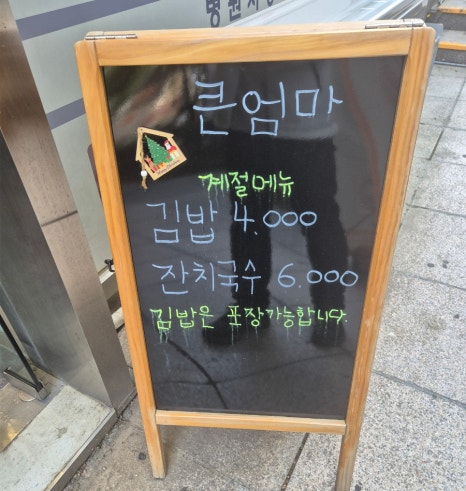 큰엄마
계절메뉴
김밥 4.000
잔치국수 6.000
김밥은 포장가능합니다.